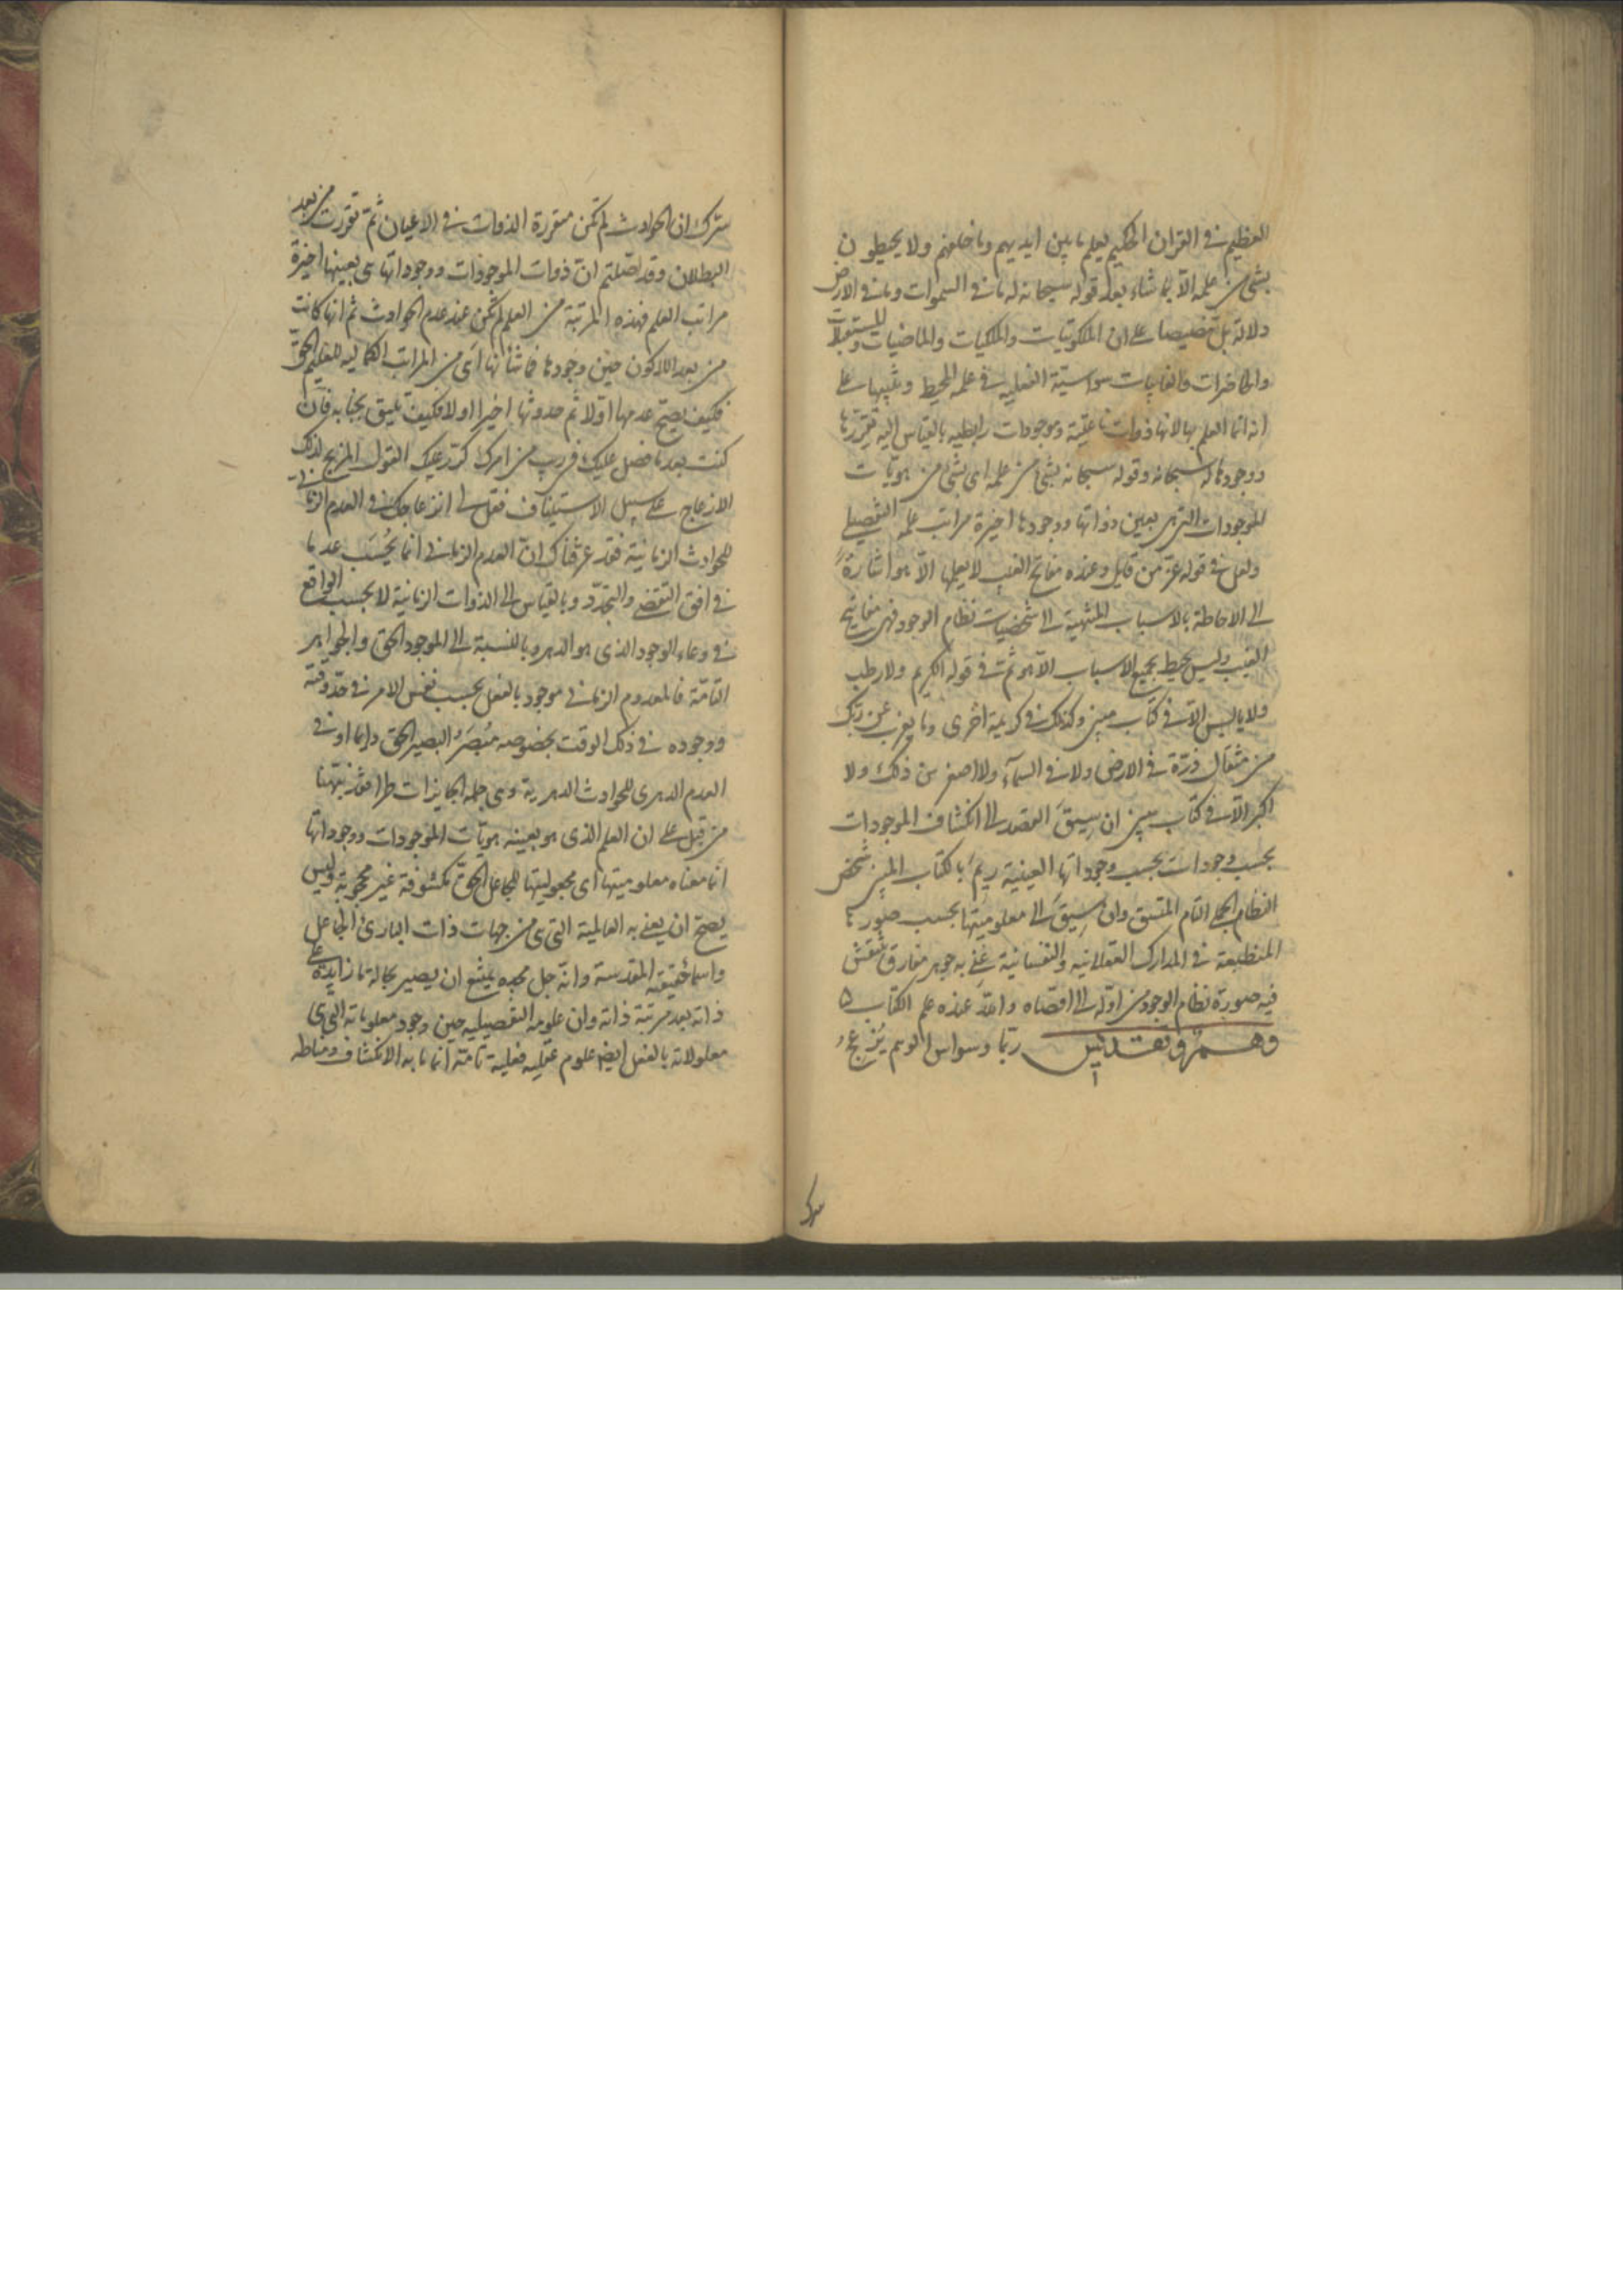 العظيم في القران الحكيم يعلم ما بين ايديهم وما خلفهم ولا يحيطون
بشئ من علمه الا بما شاء بعد قوله سبحانه له ما في السموات وما في الارض
دلالة بل تنصيصا على ان الملكوتيات والملكيات والماضيات والمستقبلات
والحاضرات والغايبات سواسية الفعلية في علمه المحيط وتنبيها على
انه انما العلم بها لانها ذوات وموجودات رابطية بالقياس اليه تقررها
ووجودها له سبحانه وقوله سبحانه بشئ من علمه اى بشئ من هويات
الموجودات التي هي بعين ذواتها ووجودها اخيرة مراتب علمه التفصيلي
ولعل في قوله عز من قايل وعنده مفاتح الغيب لا يعلمها الا هو اشارة
الى الاحاطة بالاسباب المنتهية الى شخصيات نظام الوجود فهي مفاتيح
الغيب وليس يحيط بجميع الاسباب الا هو ثمت في قوله الكريم ولا رطب
ولا يابس الا في كتاب مبين وكذلك في كريمة اخرى وما يعزب عن ربك
من مثقال ذرة في الارض ولا في السمآء ولا اصغر من ذلك ولا
اكبر الا في كتاب مبين ان سيق المقصد الى انكشاف الموجودات
بحسب وجودات بحسب وجوداتها العينية ريم بالكتاب المبين شخص
النظام الجملي التام المتسق وان سيق الى معلوميتها بحسب صورها
المنطبعة في المدارك العقلانية والنفسانية عني به جوهر مفارق تنتقش
فيه صورة نظام الوجود من اوله الى اقصاه والله عنده علم الكتاب ۵
وهم وتقديس ربما وسواس الوهم يزعج
سرك
سرك ان الحوادث لم تكن متقررة الذوات في الاعيان ثم تقررت من بعد
البطلان وقد اصلتم ان ذوات الموجودات ووجوداتها هي بعينها اخيرة
مراتب العلم فهذه المرتبة من العلم لم تكن عند عدم الحوادث ثم انها كانت
من بعد اللاكون حين وجودها فما شأنها اى من المراتب الكمالية للعليم الحق
فكيف يصح عدمها اولا ثم حدوثها اخيرا اولا فكيف تليق بجنابه فان
كنت بعد ما فصل عليك في ريب من امرك كرر عليك القول المزيح لذلك
الازعاج على سبيل الاستيناف فقل لي انزعاجك في العدم الزماني
للحوادث الزمانية فقد عرفناك ان العدم الزماني انما يحسب عدما
في افق التقضي والتجدد وبالقياس الى الذوات الزمانية لا بحسب الواقع
في وعاء الوجود الذى هو الدهر وبالنسبة الى الموجود الحق والجواهر
التامة فالمعدوم الزماني موجود بالفعل بحسب نفس الامر في حد وقته
ووجوده في ذلك الوقت بخصوصه مبصر البصير الحق دايما او في
العدم الدهرى للحوادث الدهرية وهي جملة الجايزات طرا فقد نبهنا
من قبل على ان العلم الذى هو بعينه هويات الموجودات ووجوداتها
انما معناه معلوميتها اى مجعوليتها للجاعل الحق مكشوفة غير محجوبة وليس
يصح ان يعني به العالمية التي هي من جهات ذات البارئ الجاعل
واسماء حقيقته المقدسة وانه جل مجده يمتنع ان يصير بحالة ما زايدة على
ذاته بعد مرتبة ذاته وان علومه التفصيلية حين وجود معلوماته التي هي
معلولاته بالفعل ايضا علوم فعلية تامة انما ما به الانكشاف ومناطه